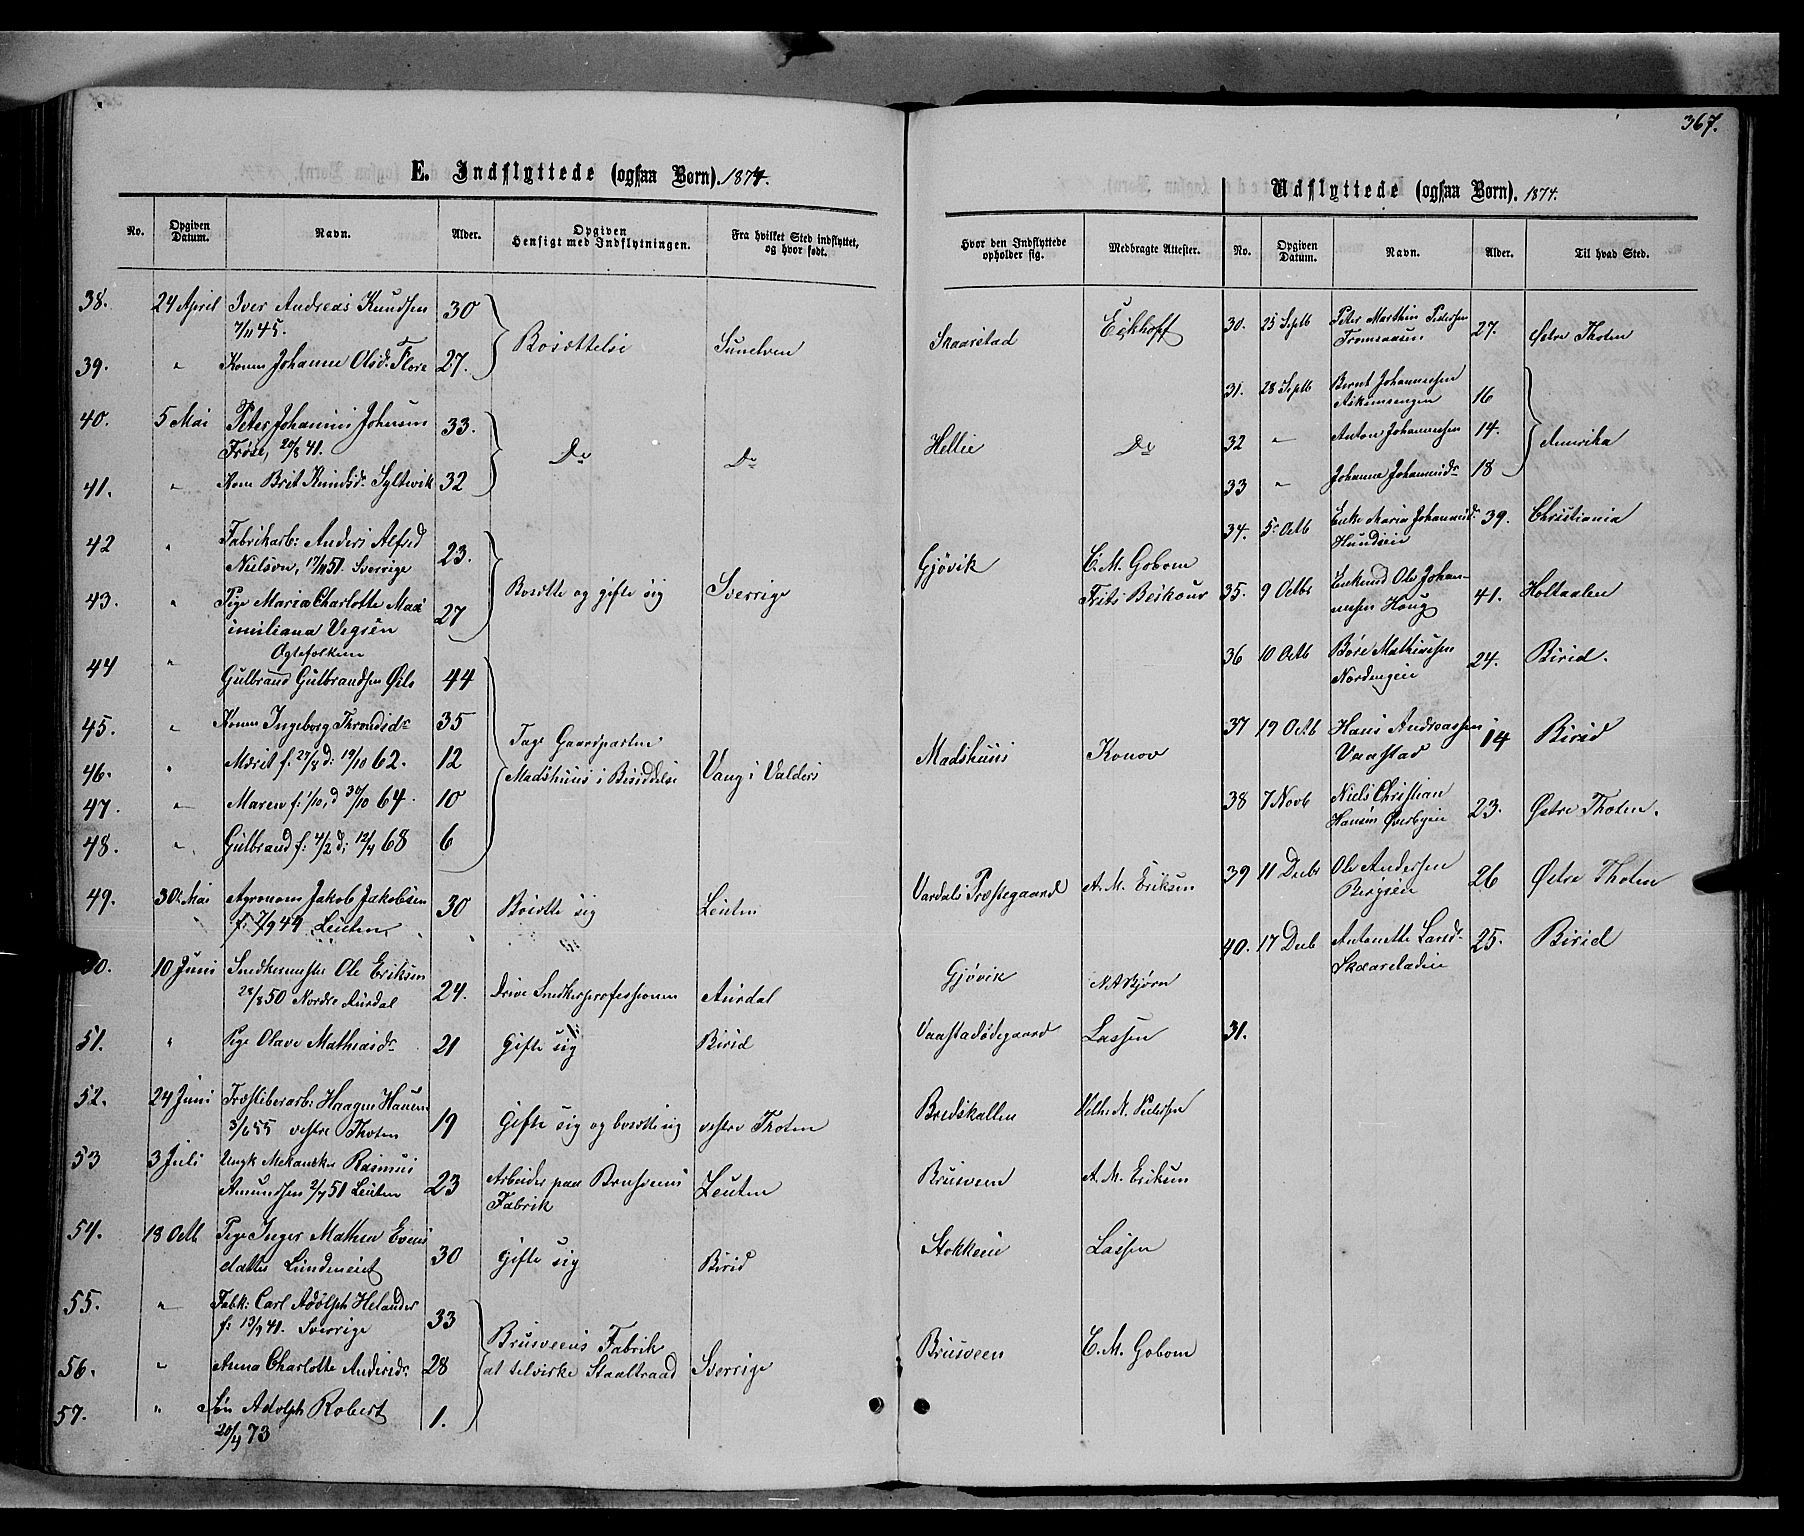 367.
E. Indflyttede (ogsaa Børn). 1874.
No. Opgiven Datum. Navn. Alder. Opgiven Hensigt med Indflytningen. Fra hvilket Sted indflyttet, og hvor født. Hvor den Indflyttede opholder sig. Medbragte Attester.
38. 24 April Iver Andreas Knudsen 30 Bosættelse Sunelven Skaarstad Eckhoff
7/11 45.
39. " Konen Johanne Olsd. Flore 27.
40. 5 Mai Peter Johannes Johnsen 33. Do Do Hellie Do
Frøse, 20/8 41.
41. " Kone Brit Knudsdr Syltevik 32
42 " Fabrikarb: Anders Alfred 23. Bosætte og gifte sig Sverrige Gjøvik C. M. Gobom
Nielson, 17/11 51. Sverrige
43. " Pige Maria Charlotte Maxi 27 Frits
imiliana Vegren
Ægtefolkene
44 " Gulbrand Gulbrandsen Øils 44 Tage Gaardparten Madshuus i Besiddelse Vang i Valders Madshuus Konow
45. " Konen Ingeborg Throndsdr 35
46. " Marit f. 27/8 d: 19/10 62. 12
47. " Maren f: 1/10, d 30/10 64. 10
48. " Gulbrand f: 4/2 d: 12/4 68 6
49. 30. Mai Agronom Jakob Jakobsen 30 Bosætte sig Leuten Vardals Præstegaard A. M. Eriksen
f: 7/9 44 Leuten
50. 10 Juni Snedkermester Ole Eriksen 24. Drive Snedkerprofessionen Aurdal Gjøvik N A Bjørn
28/8 50 Nordre Aurdal
51. " Pige Olave Mathiasdr 21 Gifte sig Birid Vaastadødegaard Lassen
52. 24 Juni Træsliberarb: Haagen Hansen 19 Gifte sig og bosætte sig vestre Thoten Bredskallen Vilh. A. Pedersen
3/6 55 vestre Thoten
53 3 Juli Ungk Mekaniker Rasmus 23 Arbeider paa Brusveens Leuten Brusveen A. M. Eriksen
Amundsen 2/7 51 Leuten Fabrik
54. 18 Octb Pige Inger Mathea Evens 30 Gifte sig Birid Stokkeie Lassen
datter Lundeneiet
55. " Fabk: Carl Adolph Helander 33 Brusveens Fabrik at tilvirke Staaltraad Sverrige Brusveen C. M. Gobom
f: 13/9 41. Sverrige
56. " Anna Charlotte Andersdr 28
57. " Søn Adolph Robert 1.
20/4 73
Udflyttede (ogsaa Børn). 1874.
No. Opgiven Datum. Navn. Alder. Til hvad Sted.
30. 25 Septb Peter Marthin Pedersen 27. Østre Thoten
31. 28 Septb Bernt Johannessen 16 Amerika
32 " Anton Johannessen 14.
33 " Johanne Johannesdr 18
34. 5 Octb Enke Maria Johannesd. 39. Christiania
Hundseie
35. 9 Octbr Enkemd Ole Johan- 41. Holtaalen
nessen Houg
36 10 Octb Børe Mathiassen 24. Birid.
Nordengeie
37 19 Octb Hans Andreassen 14 Birid
Vaastad
38 7 Novb Niels Christian 23. Østre Thoten.
Hansen Øverbyeie
39 11 Decbr Ole Andersen 26 Østre Thoten
Bergseie
40. 17 Decb Antonette Larsdr 25. Birid
Skaarstadeie
31.